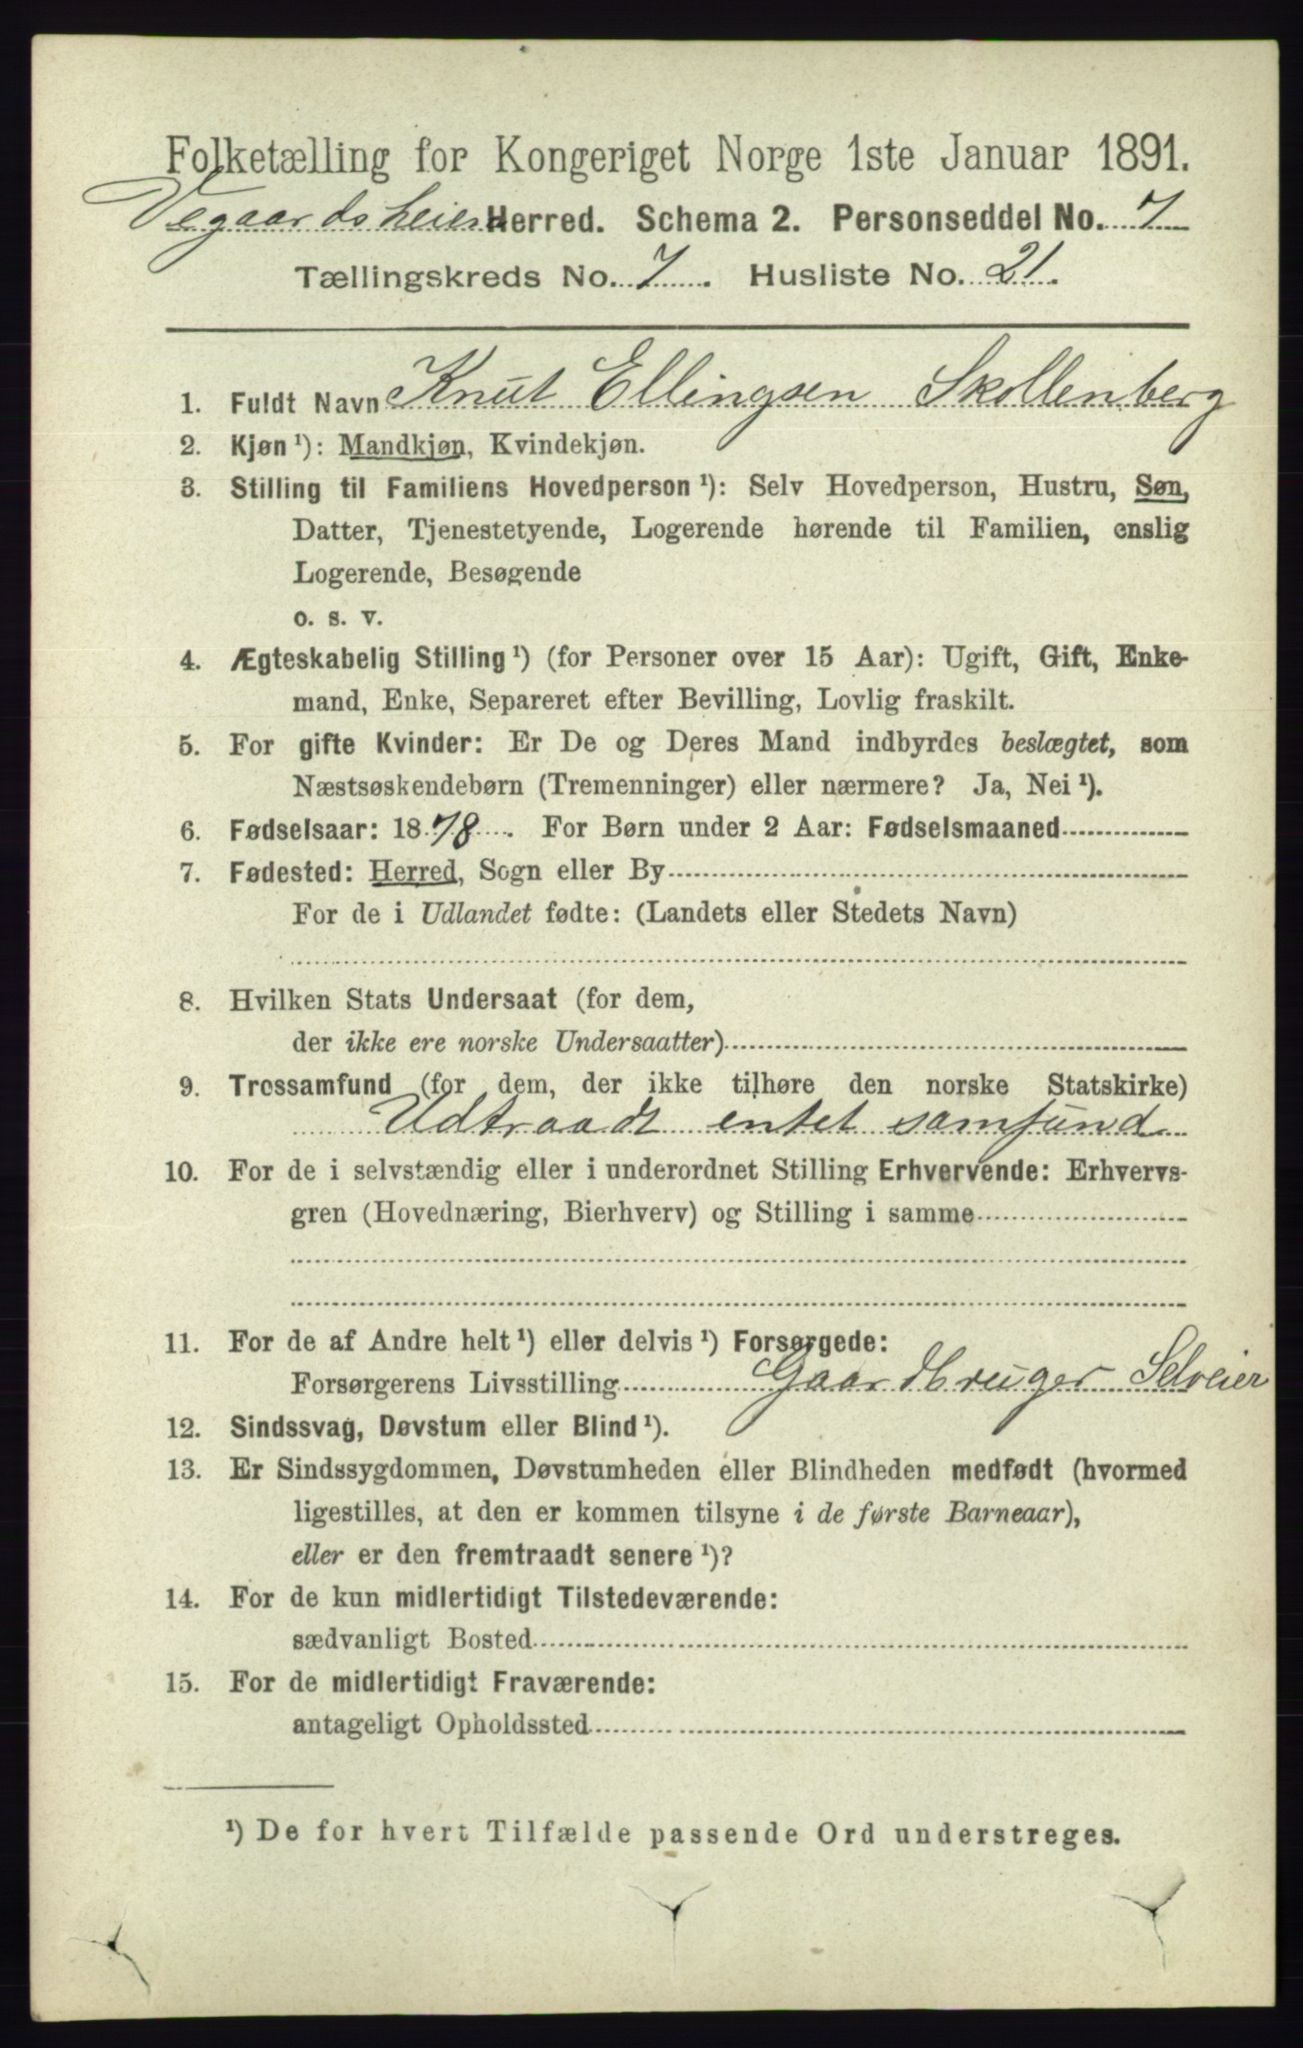 Folketælling for Kongeriget Norge 1ste Januar 1891.
Vegaardsheiens Herred. Schema 2. Personseddel No. 7
Tællingskreds No. 7. Husliste No. 21.
1. Fuldt Navn Knut Ellingsen Skollenberg
2. Kjøn ¹): Mandkjøn, Kvindekjøn.
3. Stilling til Familiens Hovedperson ¹): Selv Hovedperson, Hustru, Søn,
Datter, Tjenestetyende, Logerende hørende til Familien, enslig
Logerende, Besøgende
o. s. v.
4. Ægteskabelig Stilling ¹) (for Personer over 15 Aar): Ugift, Gift, Enke-
mand, Enke, Separeret efter Bevilling, Lovlig fraskilt.
5. For gifte Kvinder: Er De og Deres Mand indbyrdes beslægtet, som
Næstsøskendebørn (Tremenninger) eller nærmere? Ja, Nei ¹).
6. Fødselsaar: 1878. For Børn under 2 Aar: Fødselsmaaned
7. Fødested: Herred, Sogn eller By
For de i Udlandet fødte: (Landets eller Stedets Navn)
8. Hvilken Stats Undersaat (for dem,
der ikke ere norske Undersaatter)
9. Trossamfund (for dem, der ikke tilhøre den norske Statskirke)
Udtraadt entet samfund
10. For de i selvstændig eller i underordnet Stilling Erhvervende: Erhvervs-
gren (Hovednæring, Bierhverv) og Stilling i samme
11. For de af Andre helt ¹) eller delvis ¹) Forsørgede:
Forsørgerens Livsstilling Gaardbruger Selveier
12. Sindssvag, Døvstum eller Blind ¹).
13. Er Sindssygdommen, Døvstumheden eller Blindheden medfødt (hvormed
ligestilles, at den er kommen tilsyne i de første Barneaar),
eller er den fremtraadt senere ¹)?
14. For de kun midlertidigt Tilstedeværende:
sædvanligt Bosted
15. For de midlertidigt Fraværende:
antageligt Opholdssted
¹) De for hvert Tilfælde passende Ord understreges.